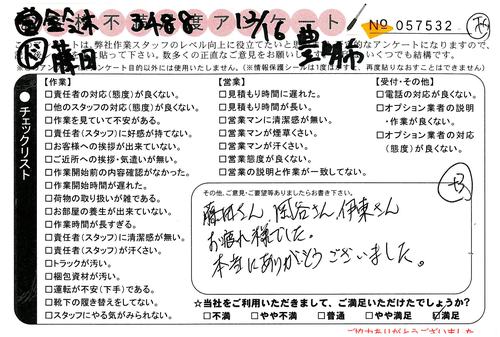 営 鈴木 3488 12/16
不満度アンケート
No 057532
ド 藤田 豊明市
ートは、弊社作業スタッフのレベル向上に役立てたいと
アンケート目的以外には使用いたしません。(※情報保護シールは1度はがすと、再度貼りなおすことはできません)
チェックリスト
【作業】
□責任者の対応(態度)が良くない。
□他のスタッフの対応(態度)が良くない。
□作業を見ていて不安がある。
□責任者(スタッフ)に好感が持てない。
□お客様への挨拶が出来ていない。
□ご近所への挨拶・気遣いが無い。
□作業開始前の内容確認がなかった。
□作業開始時間が遅れた。
□荷物の取り扱いが雑である。
□お部屋の養生が出来ていない。
□作業時間が長すぎる。
□責任者(スタッフ)に清潔感が無い。
□責任者(スタッフ)が汗くさい。
□トラックが汚い。
□梱包資材が汚い。
□運転が不安(下手)である。
□靴下の履き替えをしてない。
□スタッフにやる気がみられない。
【営業】
□見積もり時間に遅れた。
□見積もり時間が長い。
□営業マンに清潔感が無い。
□営業マンが煙草くさい。
□営業マンが汗くさい。
□営業態度が良くない。
□営業の説明と作業が一致してない。
【受付・その他】
□電話の対応が良くない。
□オプション業者の説明
・作業が良くない。
□オプション業者の対応
(態度)が良くない。
その他、ご意見・ご要望等ありましたらお書き下さい。
藤田さん、岡谷さん、伊東さん
お疲れ様でした。
本当にありがとうございました。
☆当社をご利用いただきまして、ご満足いただけたでしょうか?
□不満 □やや不満 □普通 □やや満足 □満足
ご協力ありがとうございました